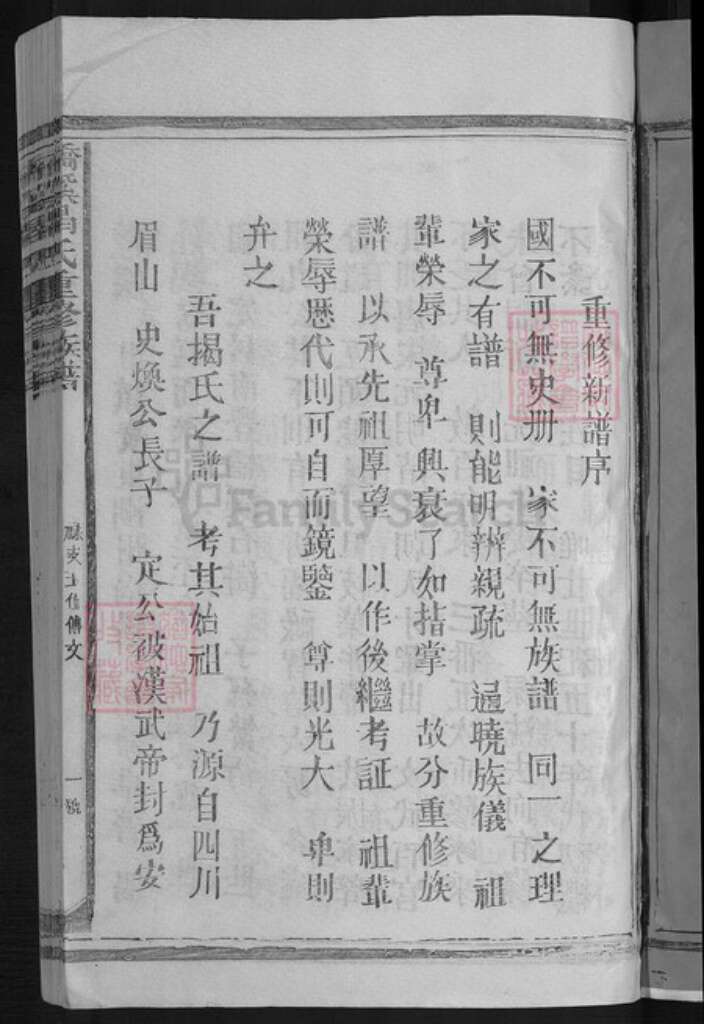 重修新譜序
國不可無史册　家不可無族譜　同一之理
家之有譜　則能明辨親疏　通曉族儀　祖
輩榮辱　尊卑興衰了如指掌　故分重修族
譜　以承先祖厚望　以作後繼考証　祖輩
榮辱歷代則可自而鏡鑒　尊則光大　卑則
弃之
吾揭氏之譜　考其始祖　乃源自四川
眉山　史煥公長子　定公被漢武帝封爲安
氏重修族譜
FamilySearch